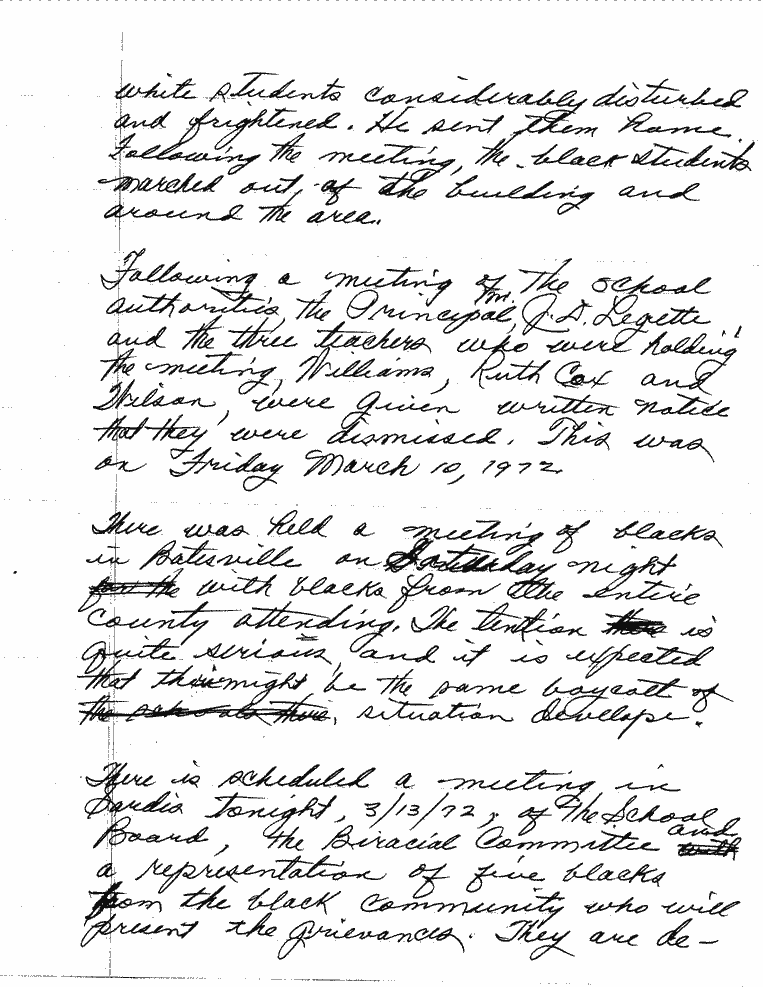 white students considerably disturbed
and frightened. He sent them home.
Following the meeting, the black students
marched out, of the building and
around the area.
Following a meeting of the school
authorities, the Principal, Mr. J.D. Legette,
and the three teachers who were holding
the meeting, Williams, Ruth Cox and
Wilson, were given written notice
that they were dismissed. This was
on Friday March 10, 1972.
There was held a meeting of blacks
in Batesville on Saturday night
for the with blacks from the entire
County attending. The tention is
quite serious, and it is expected
that their might be the same boycott of
the schools there. situation develope.
There is scheduled a meeting in
Sardis tonight, 3/13/72, of the School
Board, the Biracial Committee and
with
a representation of five blacks
from the black community who will
present the grievances. They are de-